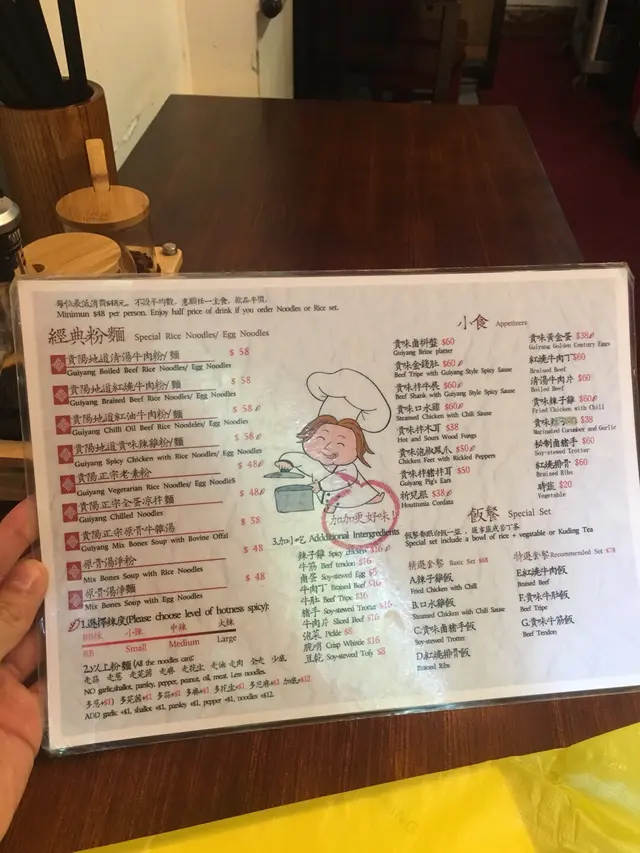 每位最低消費$48元。不設平均數。惠顧任一主食。飲品半價。
Minimun $48 per person. Enjoy half price of drink if you order Noodles or Rice set.
經典粉麵 Special Rice Noodles/ Egg Noodles
貴陽地道清湯牛肉粉/麵 $ 58
Guiyang Boiled Beef Rice Noodles/ Egg Noodles
貴陽地道紅燒牛肉粉/麵 $ 58
Guiyang Braised Beef Rice Noodles/ Egg Noodles
貴陽地道紅油牛肉粉/麵 $ 58
Guiyang Chilli Oil Beef Rice Noodeles/ Egg Noodles
貴陽地道貴味辣雞粉/麵 $ 58
Guiyang Spicy Chicken with Rice Noodles/ Egg Noodles
貴陽正宗老素粉 $ 48
Guiyang Vegetarian Rice Noodles/ Egg Noodles
貴陽正宗全蛋凉拌麵 $ 48
Guiyang Chilled Noodles
貴陽正宗原骨牛雜湯 $ 58
Guiyang Mix Bones Soup with Bovine Offal
原骨湯淨粉 $ 48
Mix Bones Soup with Rice Noodles
原骨湯淨麵 $ 48
Mix Bones Soup with Egg Noodles
1.選擇辣度(Please choose level of hotness spicy):
小辣 中辣 大辣
Small Medium Large
2.以上粉麵 (All the noodles can):
走蒜 走蔥 走芫茜 走麻 走花生 走油 走肉 全走 少底
NO garlic,shallot, parsley, pepper, peanut, oil, meat. Less noodles.
ADD garlic +$1, shallot +$1, parsley +$1, pepper +$1, noodles +$12.
加加更好味!
3.加料吃 Addditional Intergredients
辣子雞 Spicy chicken $16
牛筋 Beef tendon $16
鹵蛋 Soy-stewed Egg
牛肉丁 Braised Beef $16
牛肚 Beef Tripe $16
豬手 Soy-stewed Trotter $16
牛肉片 Sliced Beef $16
泡菜 Pickle $8
脆哨 Crisp Whistle $16
豆乾 Soy-stewed Tofu $8
小食 Appetizers
貴味鹵拼盤 $60
Guiyang Brine platter
貴味金錢肚 $60
Beef Tripe with Guiyang Style Spicy Sauce
貴味拌牛𦟌 $60
Beef Shank with Guiyang Style Spicy Sauce
貴味口水雞 $60
Steamed Chicken with Chili Sauce
貴味拌木耳 $38
Hot and Sours Wood Fungs
貴味泡椒鳳爪 $50
Chicken Feet with Rickled Peppers
貴味拌豬拌耳 $50
Guiyang Pig's Ears
折兒根 $38
Houttunia Cordata
貴味黃金蛋 $38
Guiyang Golden Century Eaggs
紅燒牛肉丁 $60
Braised Beef
清湯牛肉片 $60
Boiled Beef
貴味辣子雞 $60
Fried Chicken with Chili
貴味 $38
Marinated Cucumber and Garlic
秘制鹵豬手 $60
Soy-stewed Trotter
紅燒排骨 $60
Braised Ribs
時蔬 $20
Vegetable
飯餐 Special Set
Special set include a bowl of rice + vegetable or Kuding Tea
精選套餐 Basic Set $68
A.辣子雞飯
Fried Chicken with Chili
B.口水雞飯
Steamed Chicken with Chili Sauce
C.貴味鹵豬手飯
Soy-stewed Trotter
D.紅燒排骨飯
Braised Ribs
特選套餐 Recommended Set $78
E.紅燒牛肉飯
Braised Beef
F.貴味牛肚飯
Beef Tripe
G.貴味牛筋飯
Beef Tendon